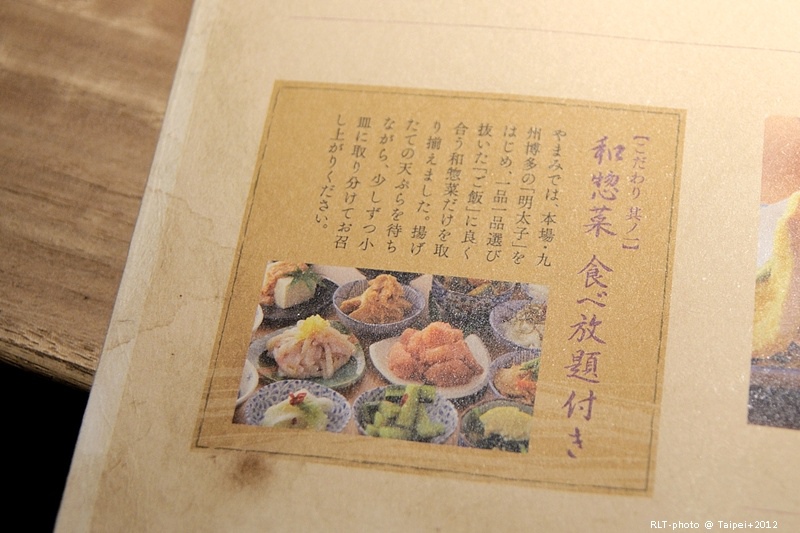 【こだわり 其ノ一】
和惣菜 食べ放題付き
やまみでは、本場・九
州博多の「明太子」を
はじめ、一品一品選び
抜いた「ご飯」に良く
合う和惣菜だけを取
り揃えました。揚げ
たての天ぷらを待ち
ながら、少しずつ小
皿に取り分けてお召
し上がりください。
RLT-photo @ Taipei+2012